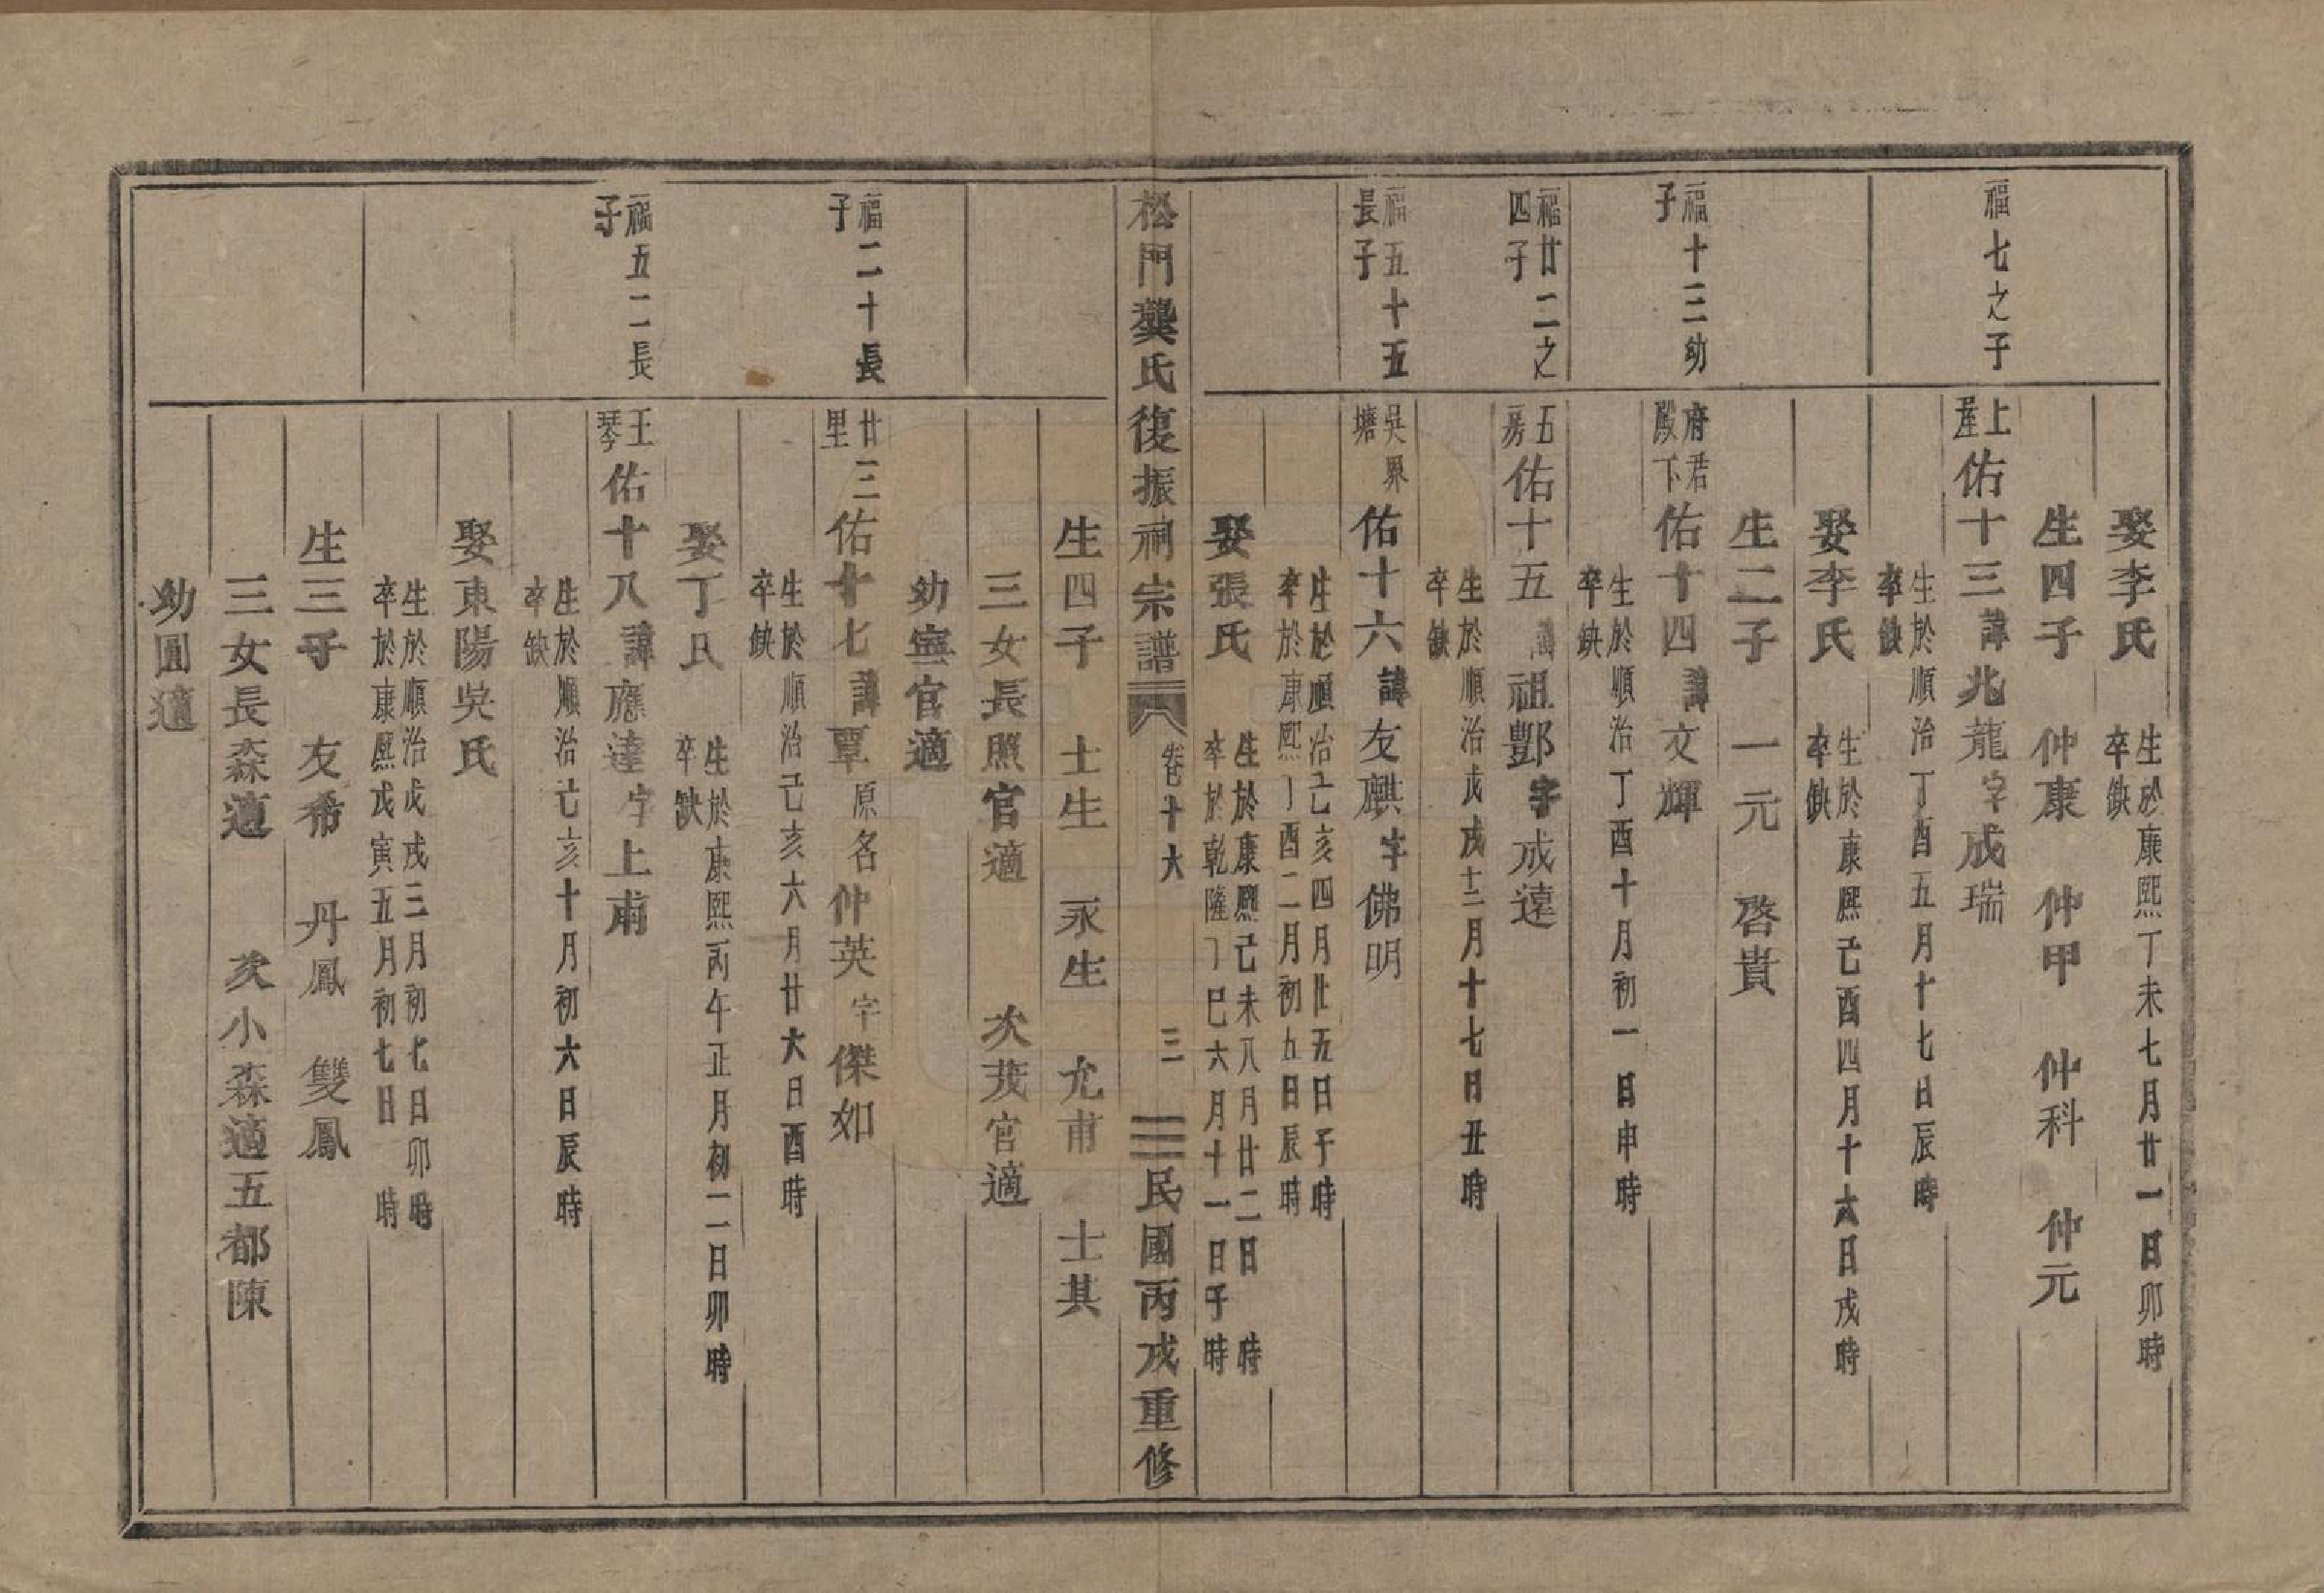 娶李氏
生於康熙丁未七月廿一日卯時
卒缺
生四子 仲康 仲甲 仲科 仲元
福七之子
上屋
佑十三諱兆龍字成瑞
生於順治丁酉五月十七日辰時
卒缺
娶李氏
生於康熙己酉四月十六日戌時
卒缺
生二子 一元 啓貴
福十三幼子
府君殿下
佑十四諱文輝
生於順治丁酉十月初一日申時
卒缺
福廿二之四子
五房
佑十五諱祖酆字成遠
生於順治戊戌十二月十七日丑時
卒缺
福五十五長子
吳界塘
佑十六諱友麒字佛明
生於順治己亥四月廿五日子時
卒於康熙丁酉二月初五日辰時
娶張氏
生於康熙己未八月廿二日 時
卒於乾隆丁巳六月十一日子時
松門龔氏復振祠宗譜 卷十六 三 民國丙戌重修
生四子 士生 永生 允甫 士其
三女長照官適 次茂官適
幼寧官適
福二十長子
廿三里
佑十七諱覃原名仲英字傑如
生於順治己亥六月廿六日酉時
卒缺
娶丁氏
生於康熙丙午正月初二日卯時
卒缺
福五二長子
王琴
佑十八諱應達字上甫
生於順治己亥十月初六日辰時
卒缺
娶東陽吳氏
生於順治戊戌三月初七日卯時
卒於康熙戊寅五月初七日 時
生三子 友希 丹鳳 雙鳳
三女長森適 次小森適五都陳
幼圓適